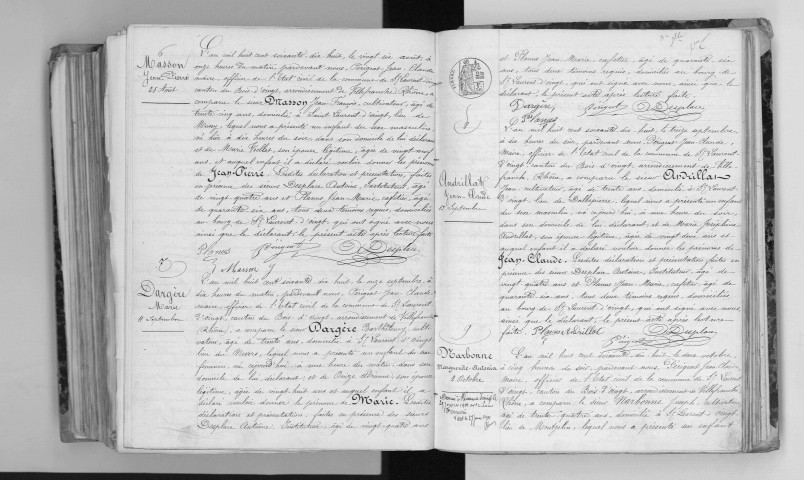 6
Masson
Jean Pierre
25 Août
L'an mil huit cent soixante dix huit, le vingt six août, à
onze heures du matin, pardevant nous, Perigeat Jean Claude
maire, officier de l'Etat civil de la commune de St Laurent
canton du Bois d'oingt, arrondissement de Villefranche (Rhône), a
comparu le sieur Masson Jean François, cultivateur, âgé de
trente cinq ans, domicilié à Saint Laurent d'oingt, lieu de
lequel nous a présenté un enfant du sexe masculin
né hier à dix heures du soir, dans son domicile de lui déclarant
et de Marie Viollet, son épouse légitime, âgée de vingt neuf
ans, et auquel enfant il a déclaré vouloir donner les prénoms
de Jean Pierre. Lesdites déclaration et présentation, faites
en présence des sieurs Desplace Antoine, Instituteur, âgé
de vingt quatre ans et Planus Jean Marie, cafetier, âgé
de quarante six ans, tous deux témoins requis, domiciliés
au bourg de St Laurent d'oingt, qui ont signé avec nous
ainsi que le déclarant, le présent acte après lecture faite
Planus Desplace
Masson J
7
Dargère
Marie
11 Septembre
L'an mil huit cent soixante dix huit, le onze septembre, à
dix heures du matin, pardevant nous, Perigeat Jean Claude
maire, officier de l'Etat civil de la commune de St Laurent
d'oingt, canton du Bois d'oingt, arrondissement de Villefranche
(Rhône), a comparu le sieur Dargère Barthélemy, culti-
vateur, âgé de trente ans, domicilié à St Laurent d'oingt
lieu de lequel nous a présenté un enfant du sexe
féminin, né à une heure du matin, dans son
domicile de lui déclarant, et de son épouse
légitime, âgée de vingt huit ans et auquel enfant il a
déclaré vouloir donner le prénom de Marie. Lesdites
déclaration et présentation, faites en présence des sieurs
Desplace Antoine Instituteur, âgé de vingt quatre ans
et Planus Jean Marie, cafetier, âgé de quarante six
ans, tous deux témoins requis, domiciliés au bourg de
St Laurent d'oingt, qui ont signé avec nous ainsi que le
déclarant, le présent acte après lecture faite.
Dargère Desplace
Planus
8
Andrillat
Jean Claude
13 Septembre
L'an mil huit cent soixante dix huit, le treize septembre,
à dix heures du soir, pardevant nous, Perigeat Jean Claude,
Maire, officier de l'Etat civil de la commune de St Laurent
d'oingt canton du Bois d'oingt, arrondissement de Ville-
franche (Rhône), a comparu le sieur Andrillat
Jean, cultivateur, âgé de trente ans, domicilié à St Laurent
d'oingt, lieu de lequel nous a présenté un enfant
du sexe masculin, né à une heure du soir,
dans son domicile de lui déclarant, et de Marie Joséphine
son épouse légitime, âgée de vingt deux ans et
auquel enfant il a déclaré vouloir donner les prénoms de
Jean Claude. Lesdites déclaration et présentation faites en
présence des sieurs Desplace Antoine, Instituteur, âgé de
vingt quatre ans et Planus Jean Marie, cafetier, âgé de
quarante six ans, tous deux témoins requis, domiciliés
au bourg de St Laurent d'oingt, qui ont signé avec nous,
ainsi que le déclarant, le présent acte après lecture
faite. Planus Andrillat Desplace
9
Narbonne
Marguerite Antonia
2 Octobre
L'an mil huit cent soixante dix huit, le deux octobre,
à cinq heures du soir, pardevant nous, Perigeat Jean Claude
Maire, officier de l'Etat civil de la commune de St Laurent
d'oingt, canton du Bois d'oingt, arrondissement de Villefranche
(Rhône), a comparu le sieur Narbonne Joseph, cultivateur
âgé de trente quatre ans, domicilié à St Laurent d'oingt
lieu de lequel nous a présenté un enfant